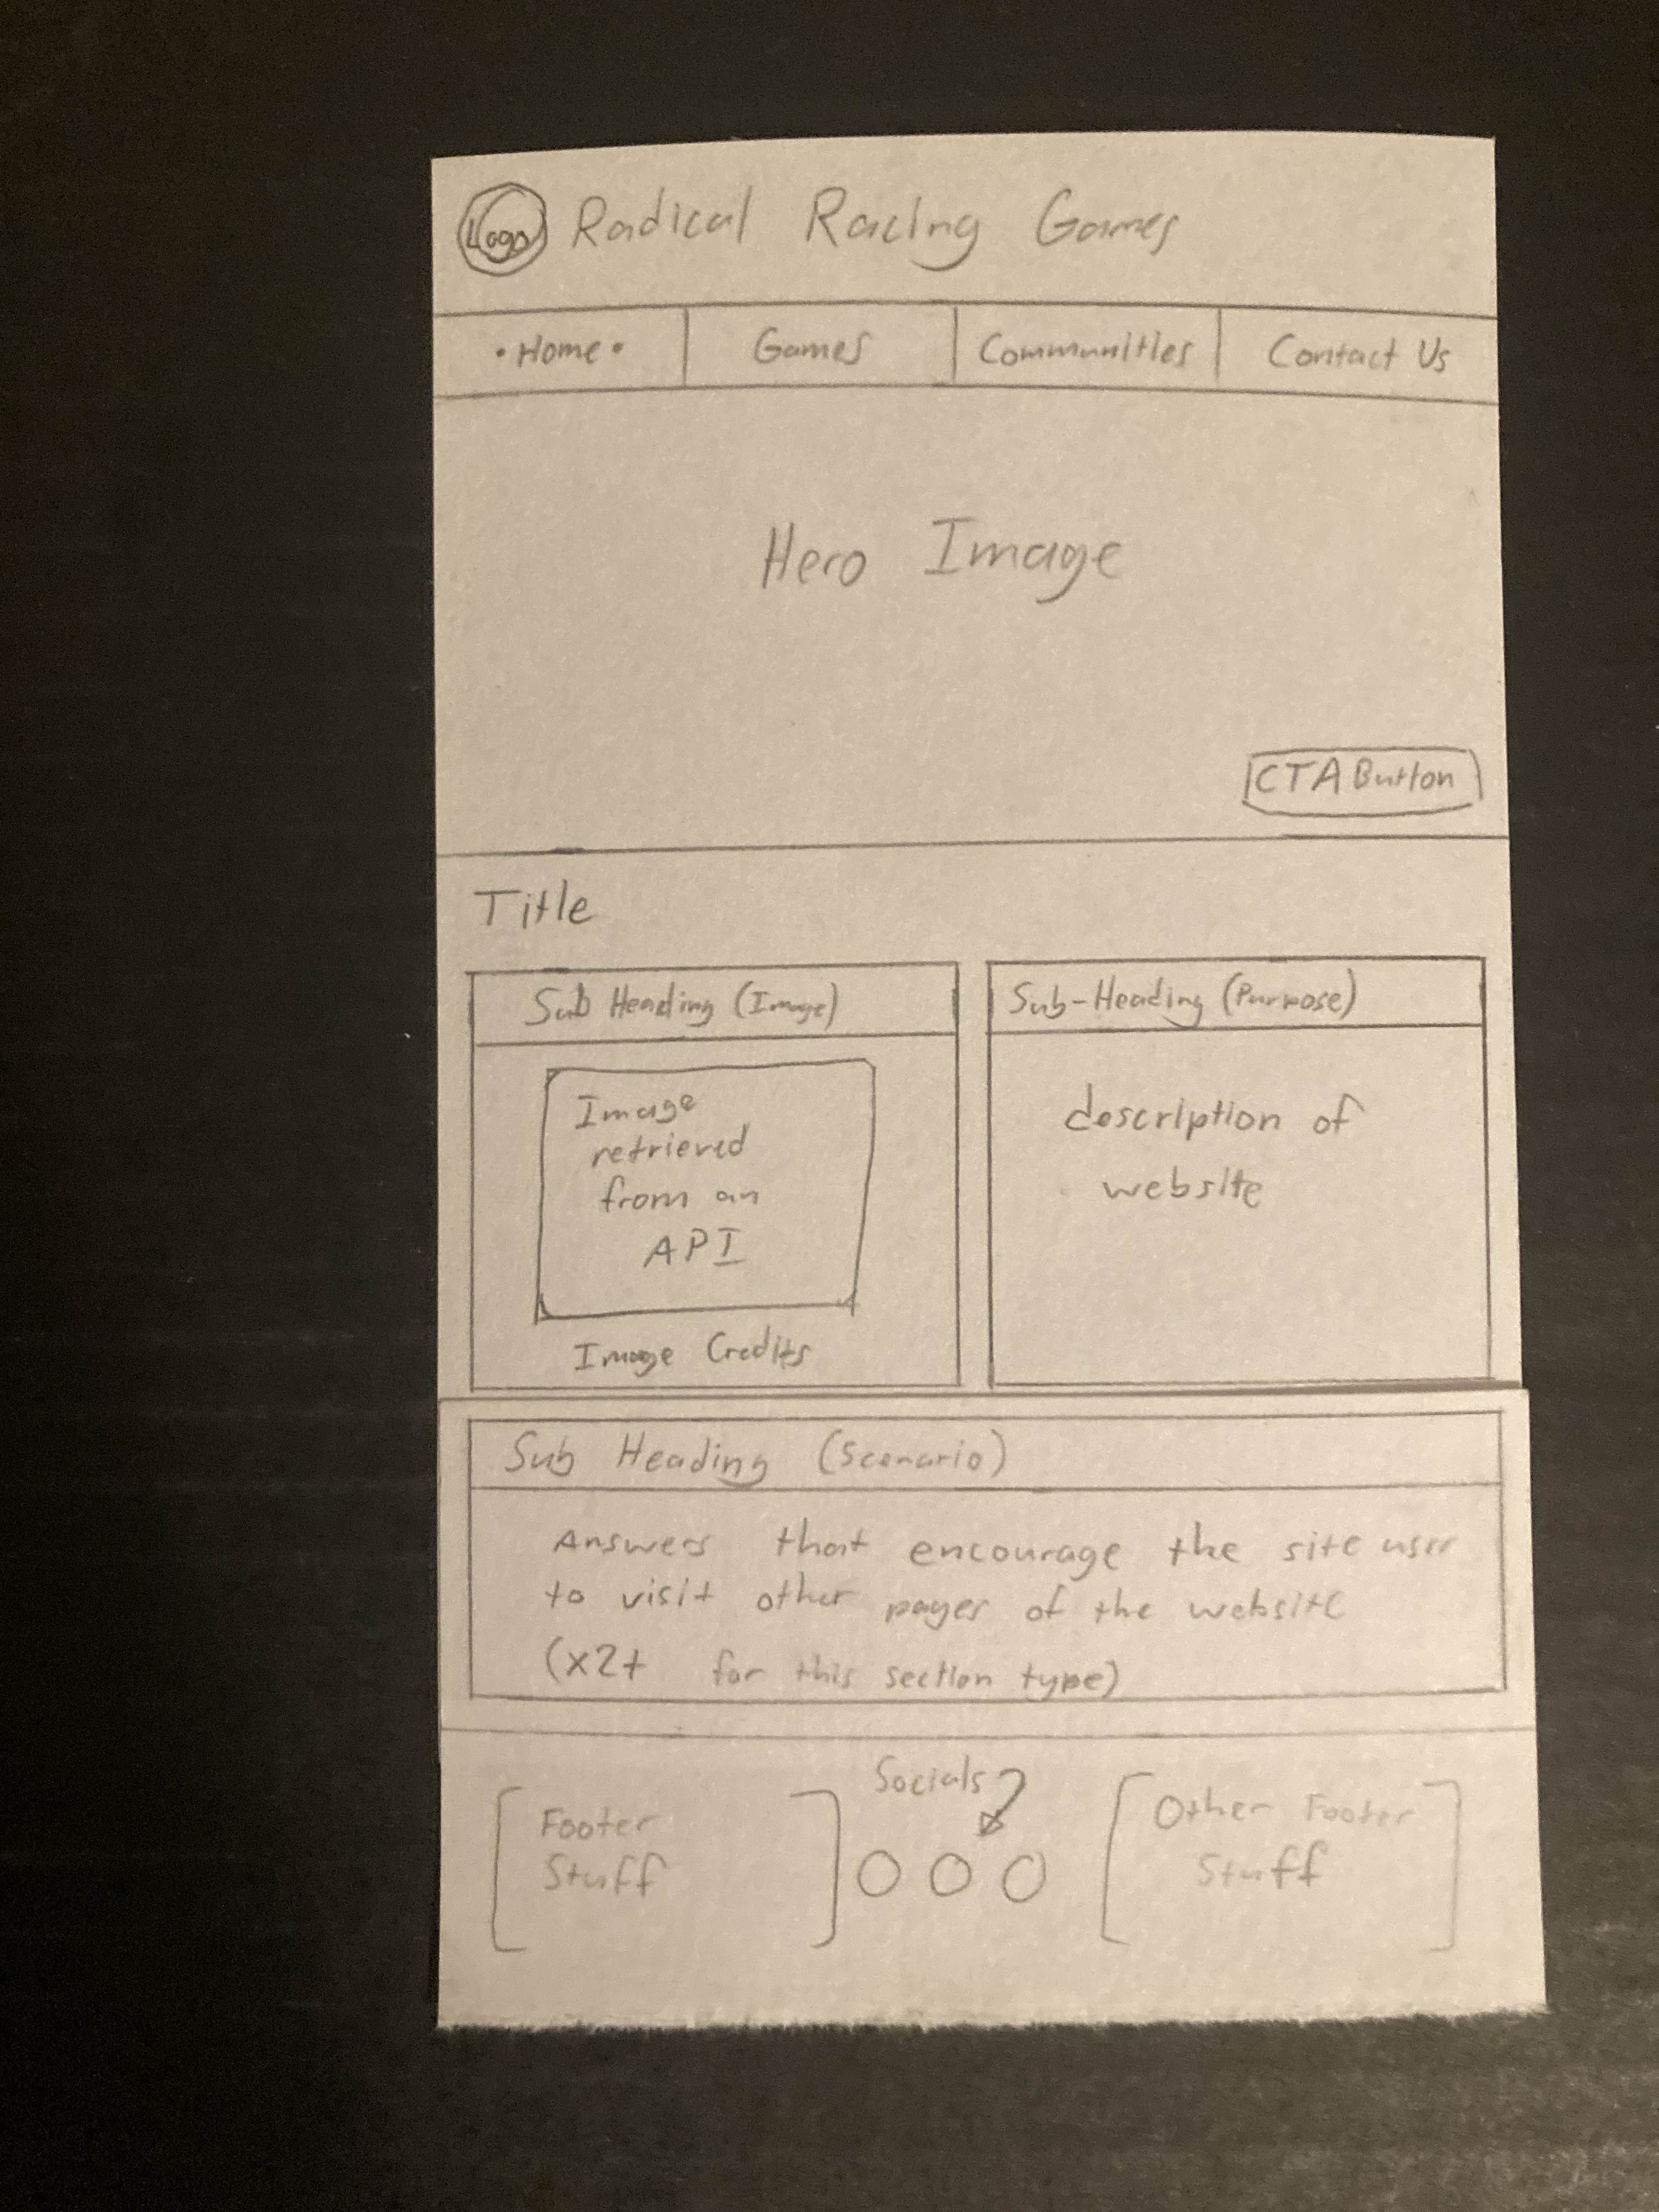 Logo Radical Racing Games
• Home • Games Communities Contact Us
Hero Image
CTA Button
Title
Sub Heading (Image)
Image
retrieved
from an
API
Image Credits
Sub-Heading (Purpose)
description of
website
Sub Heading (Scenario)
Answers that encourage the site user
to visit other pages of the website
(x2+ for this section type)
Footer
Stuff
Socials
Other Footer
Stuff